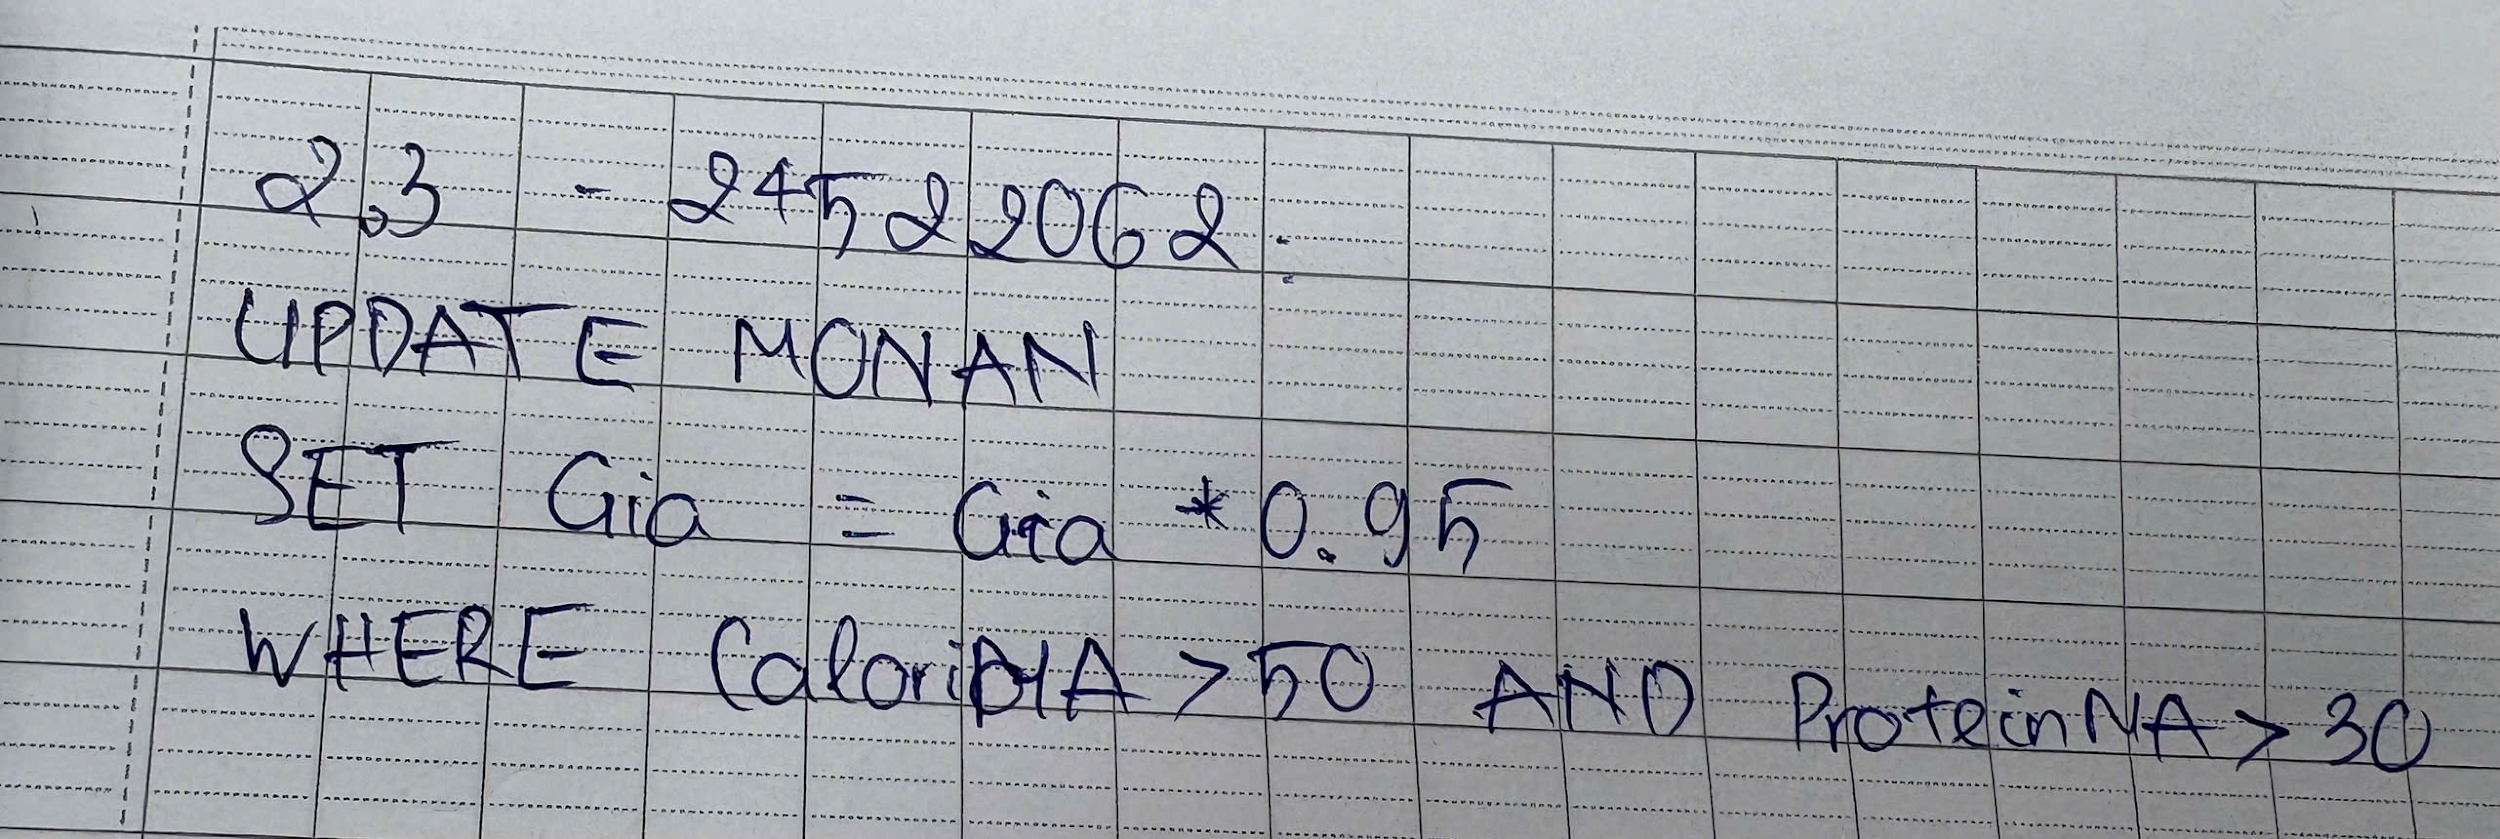 2.3 - 24522062.
UPDATE MONAN
SET Gia = Gia * 0.95
WHERE > 50 AND ProteinNA > 30